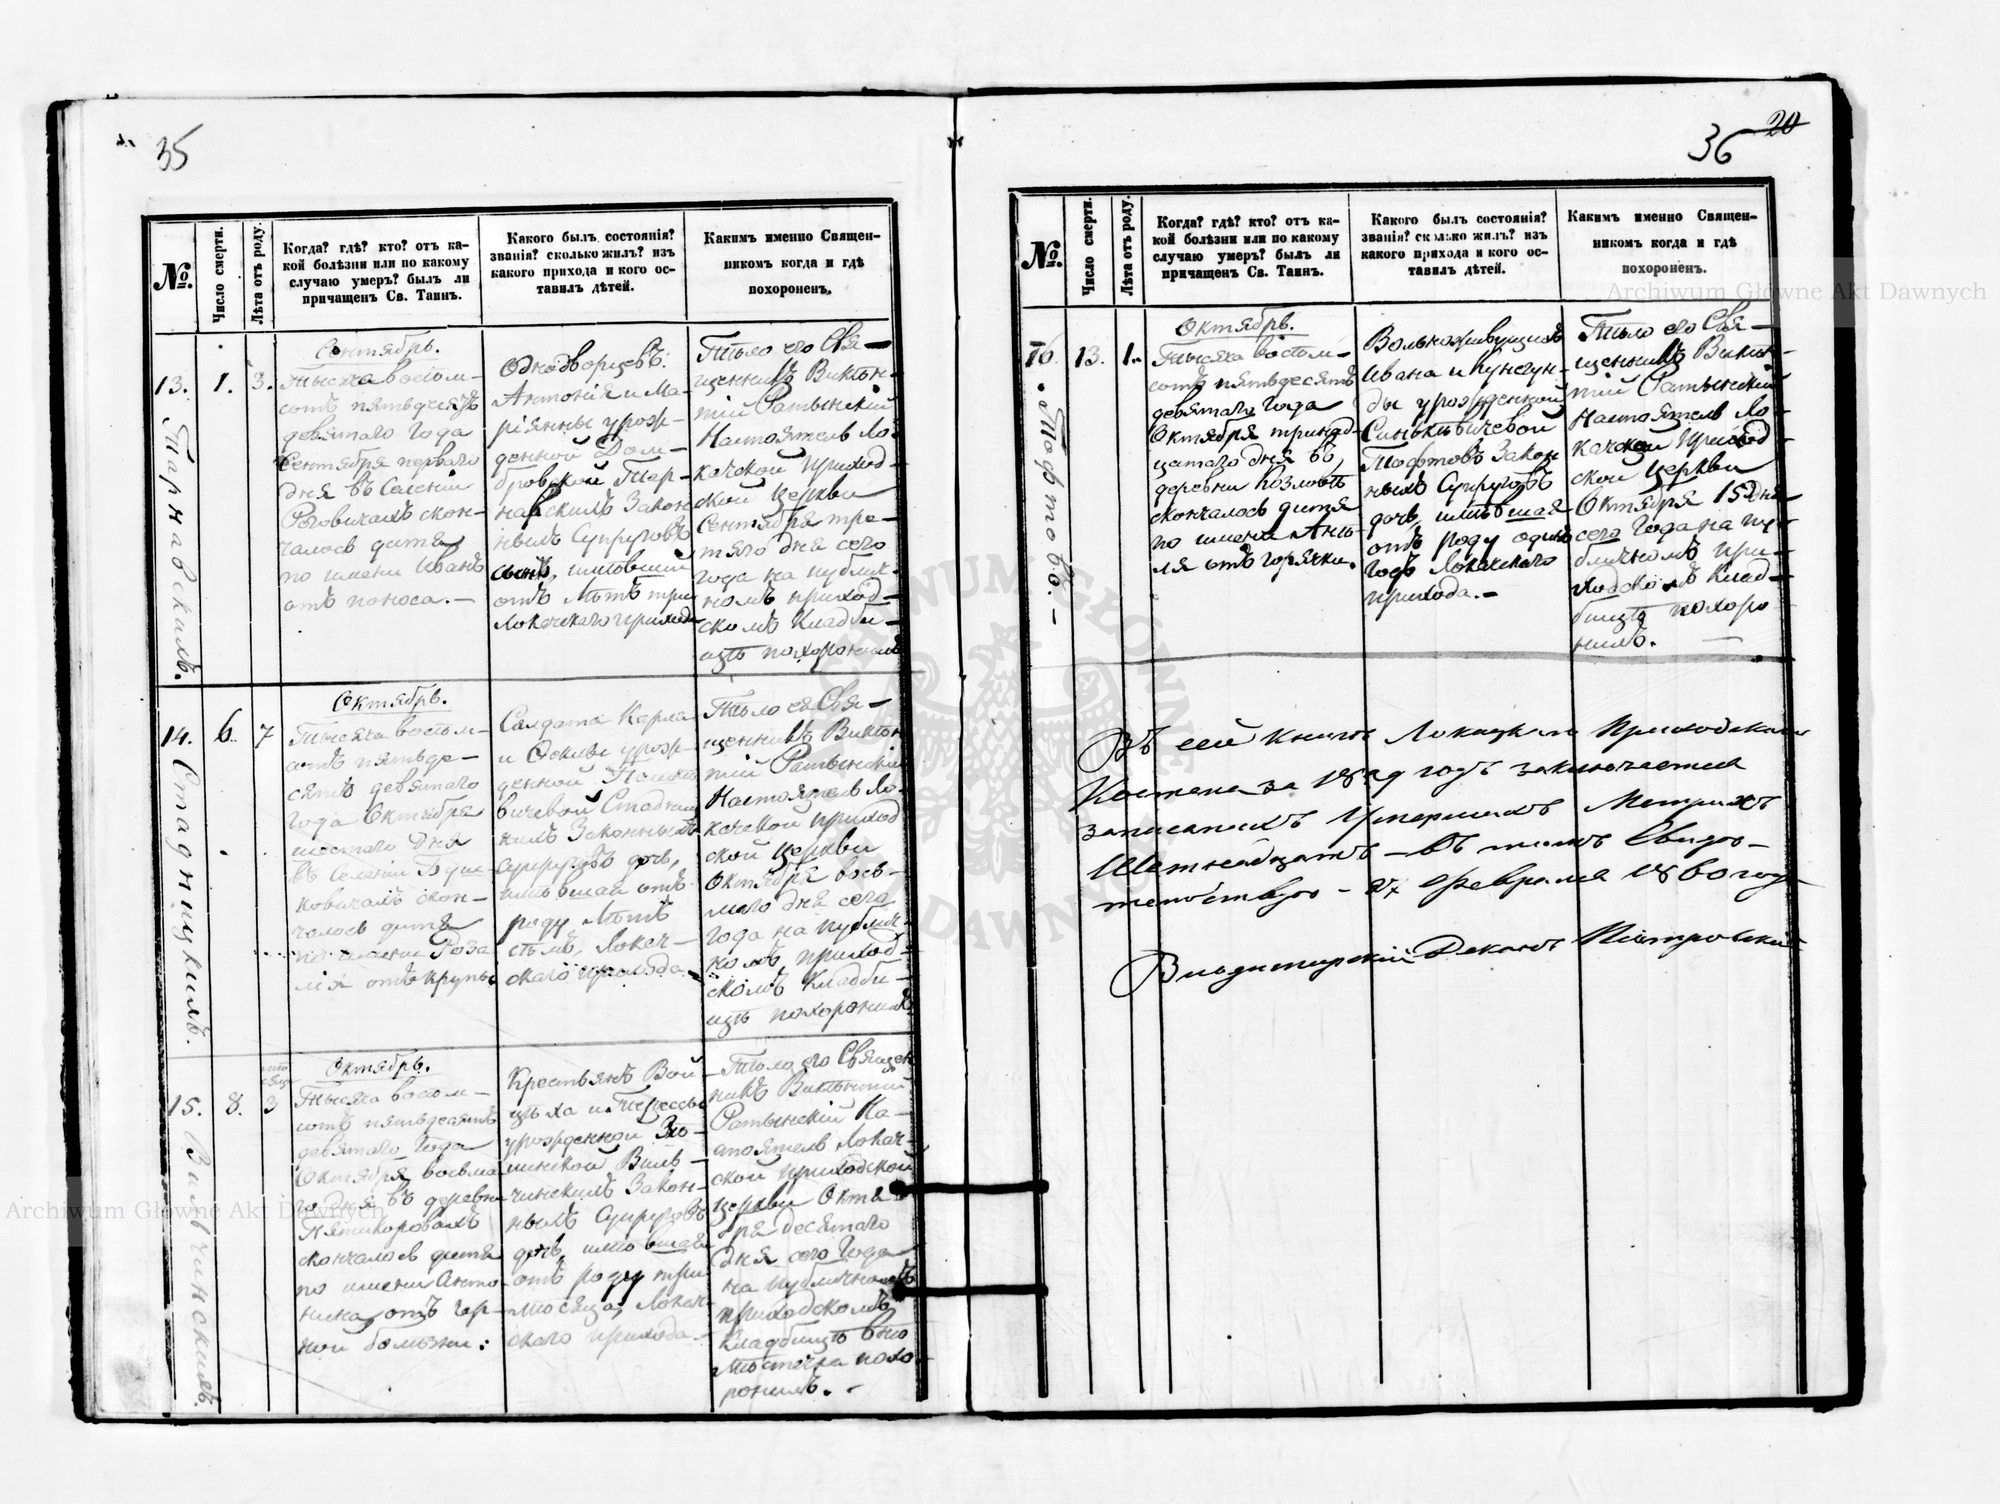 35
№.
Число смерти.
Лѣта отъ роду.
Когда? гдѣ? кто? отъ ка-
кой болѣзни или по какому
случаю умеръ? былъ ли
причащенъ Св. Таинъ.
Какого былъ состоянія?
званія? сколько жилъ? изъ
какого прихода и кого ос-
тавилъ дѣтей.
Каким именно Священ-
никомъ когда и гдѣ
похороненъ.
13. Тарнавскихъ.
1.
3.
Сентябрь.
Тысяча восѣм-
сотъ пятьдесятъ
девятаго года
Сентября перваго
дня въ Селеніи
Роговичахъ скон-
чалось дитя
по имени Иванъ
отъ поноса. —
Однодворцевъ:
Антонія и Ма-
ріянны урож-
денной Дом-
бровской Тар-
навскихъ Закон-
ныхъ Супруговъ
сынъ, имѣвшій
отъ Лѣтъ три
Локачскаго прихода
Тѣло его Свя-
щенникъ Викѣн-
тій Ратынскій
Настоятель Ло-
качской приход-
ской церкви
Сентября тре-
тяго дня сего
года на публич-
номъ приход-
скомъ Кладби-
щѣ похоронилъ
14. Стадницкихъ.
6.
7
Октябрь.
Тысяча восѣм-
сотъ пятьде-
сятъ девятаго
года Октября
шестаго дня
въ Селеніи
ковичахъ скон-
чалось дитя
по имени Роза
лія отъ крупы
Салдата Карла
и урож-
денной
вичевой Стадниц-
кихъ Законныхъ
Супруговъ дочь,
имѣвшая отъ
роду Лѣтъ
семь, Локач-
скаго прихода
Тѣло ея Свя-
щенникъ Викѣн
тій Ратынскій
Настоятель Ло-
качской приход
ской церкви
Октября вось-
маго дня сего
года на публич-
номъ приход-
скомъ Кладби-
щѣ похоронилъ
15. Вильчинскихъ.
8.
3
Октябрь.
Тысяча восѣм-
сотъ пятьдесятъ
девятаго года
Октября восьма
го дня въ деревни
Пятикоровахъ
скончалось дитя
по имени Анто
нина, отъ гор-
ной болѣзни:
Крестьянъ Вой-
цѣха и Терессы
урожденной
Виль-
чинскихъ Закон-
ныхъ Супруговъ
дочь, имѣвшая
отъ роду три
мѣсяца, Локач-
скаго прихода. —
Тѣло его Священ
никъ Викѣнтій
Ратынскій На-
стоятель Локач-
ской приходской
церкви Октя-
бря десятаго
дня сего года
на публичномъ
приходскомъ
Кладбищѣ внѣ
мѣстечка похо
ронилъ. —
36
20
№.
Число смерти.
Лѣта отъ роду.
Когда? гдѣ? кто? отъ ка-
кой болѣзни или по какому
случаю умеръ? былъ ли
причащенъ Св. Таинъ.
Какого былъ состоянія?
званія? сколько жилъ? изъ
какого прихода и кого ос-
тавилъ дѣтей.
Каким именно Священ-
никомъ когда и гдѣ
похороненъ.
16. Тофтовъ. —
13.
1.
Октябрь.
Тысяча восѣм-
сотъ пятьдесятъ
девятаго года
Октября тринад-
цатаго дня въ
деревни Козловѣ
скончалось дитя
по имени Анѣ-
ля отъ горячки.
Вольноживущихъ
Ивана и Кунегун-
ды урожденной
Синькевичевой
Тофтовъ Закон
ныхъ Супруговъ
дочь, имѣвшая
отъ роду одинъ
годъ Локачскаго
прихода. —
Тѣло его Свя-
щенникъ Викѣн-
тій Ратынскій
Настоятель Ло-
качской приход-
ской церкви
Октября 15 дня
сего года на пу-
бличномъ при-
ходскомъ Клад-
бищѣ похоро-
нилъ. —
Въ сей книгѣ Локацкаго Приходскаго
Костела за 1859 годъ заключается
записанныхъ Умершихъ Метрикъ
Шестнадцать — въ томъ Свидѣ-
тельствую — Февраля 1860 года
Владимирскій Деканъ
Archiwum Główne Akt Dawnych
Archiwum Główne Akt Dawnych
ARCHIWUM GŁÓWNE AKT DAWNYCH